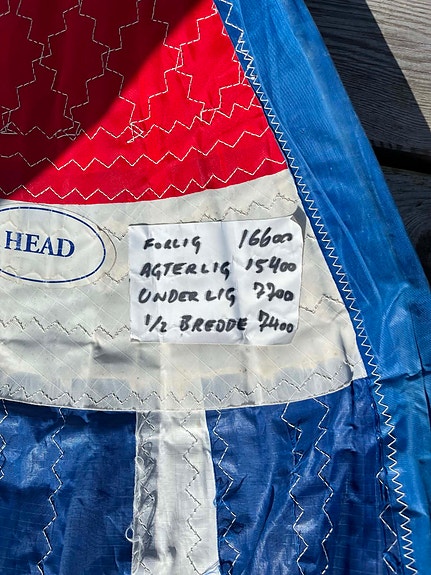 HEAD
FORLIG 16600
AGTERLIG 15400
UNDERLIG 7700
1/2 BREDDE 7400